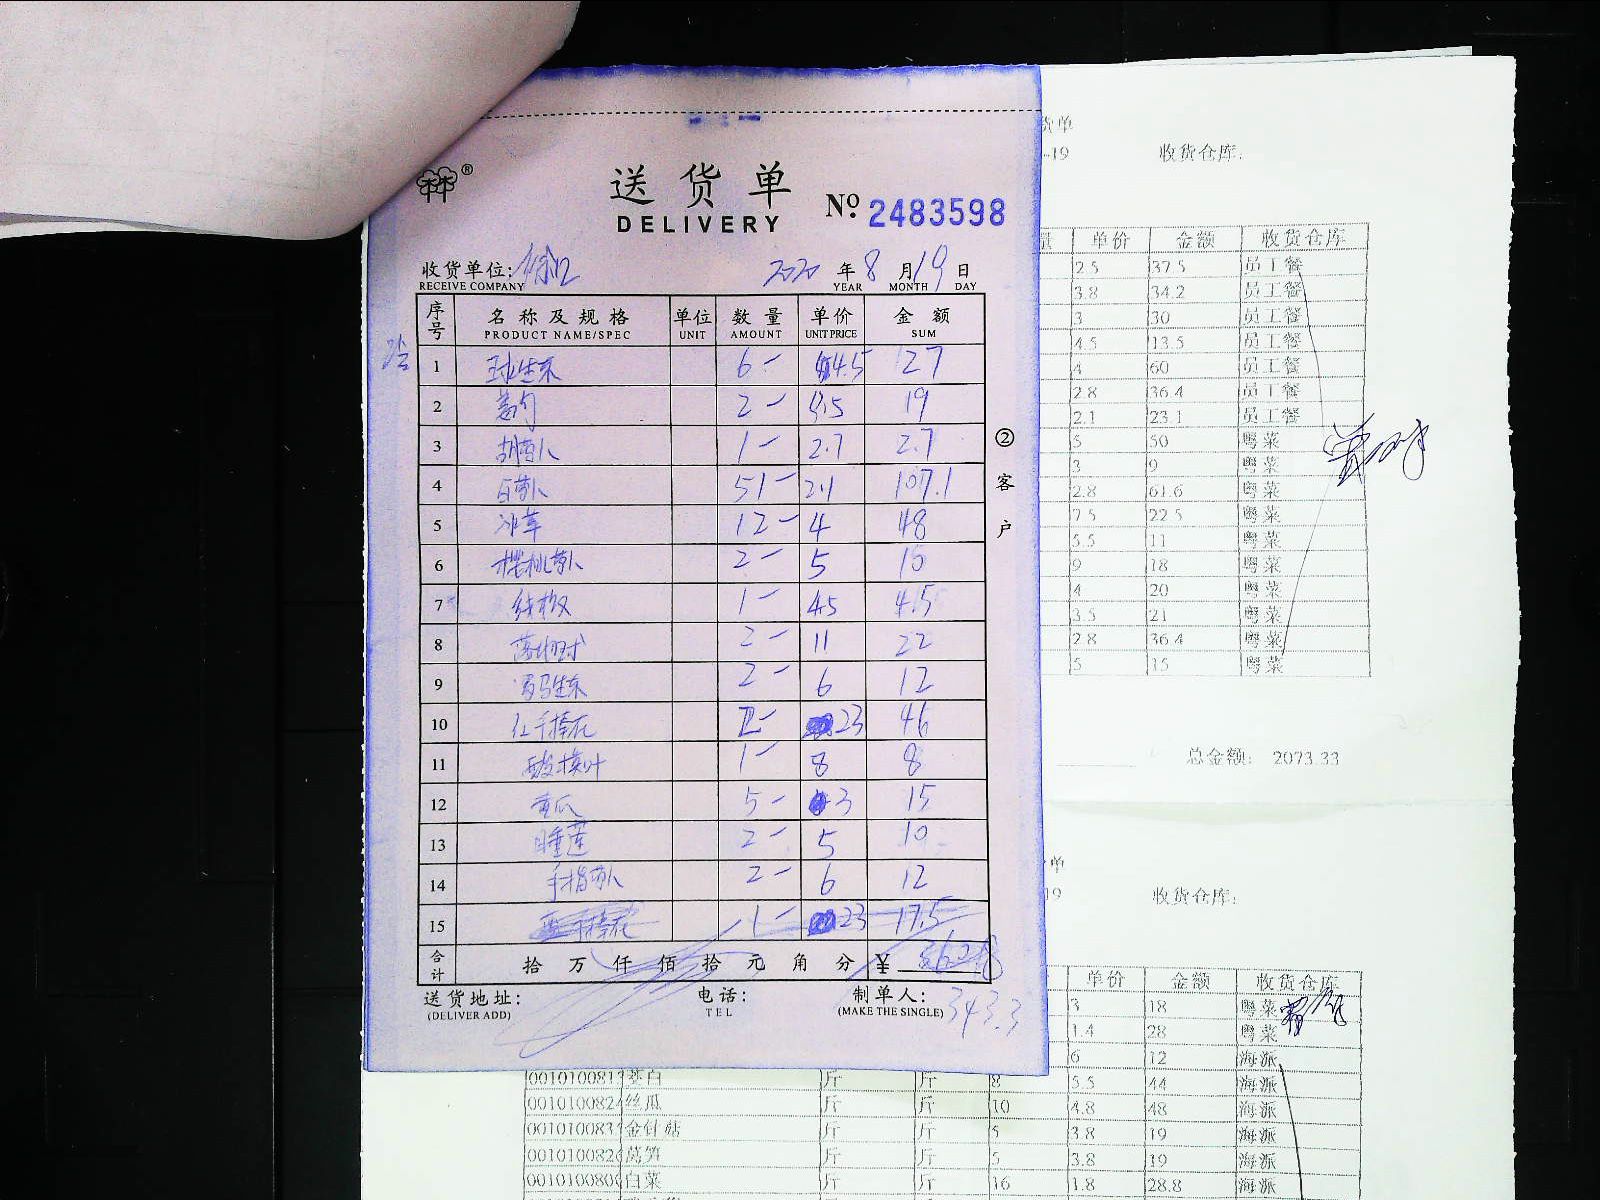 送货单
DELIVERY
No. 2483598
收货单位: 徐汇 2020 年 8 月 19 日
RECEIVE COMPANY YEAR MONTH DAY
序号 名称及规格 单位 数量 单价 金额
PRODUCT NAME/SPEC UNIT AMOUNT UNIT PRICE SUM
1 球生菜 6 4.5 27
2 2 9.5 19
3 胡萝卜 1 2.7 2.7
4 白萝卜 51 2.1 107.1
5 冰草 12 4 48
6 樱桃萝卜 2 5 10
7 1 4.5 4.5
8 2 11 22
9 罗马生菜 2 6 12
10 23 46
11 酸模叶 1 8 8
12 黄瓜 5 3 15
13 睡莲 2 5 10
14 手指萝卜 2 6 12
15 1 23 17.5
合计 拾 万 仟 佰 拾 元 角 分 ¥
343.3
送货地址: 电话: 制单人:
(DELIVER ADD) TEL (MAKE THE SINGLE)
② 客户
货单
-19 收货仓库:
单价 金额 收货仓库
2.5 37.5 员工餐
3.8 34.2 员工餐
3 30 员工餐
4.5 13.5 员工餐
4 60 员工餐
2.8 36.4 员工餐
2.1 23.1 员工餐
5 50 粤菜
3 9 粤菜
2.8 61.6 粤菜
7.5 22.5 粤菜
5.5 11 粤菜
9 18 粤菜
4 20 粤菜
3.5 21 粤菜
2.8 36.4 粤菜
5 15 粤菜
总金额: 2073.33
单
19 收货仓库:
单价 金额 收货仓库
3 18 粤菜
1.4 28 粤菜
6 12 海派
茭白 斤 斤 8 5.5 44 海派
丝瓜 斤 斤 10 4.8 48 海派
金针菇 斤 斤 5 3.8 19 海派
莴笋 斤 斤 5 3.8 19 海派
白菜 斤 斤 16 1.8 28.8 海派